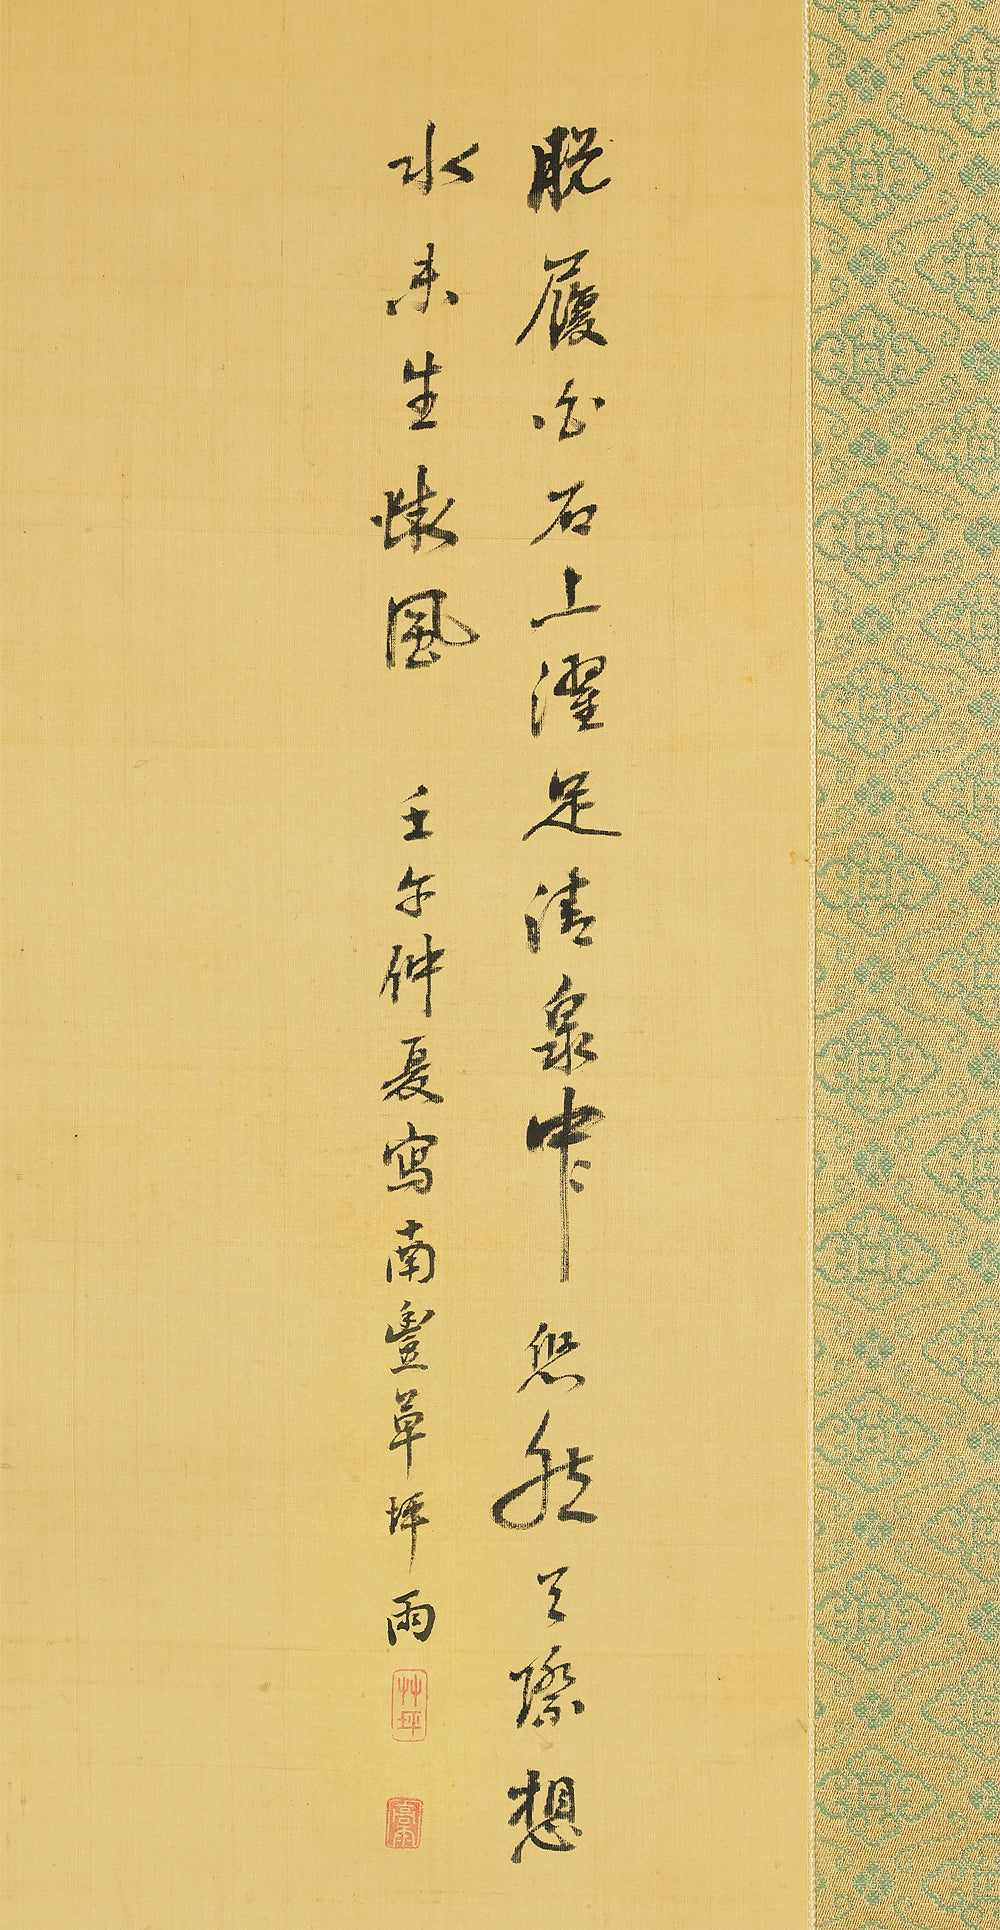 脱履白石上濯足清泉中悠然天際想
水末生風 壬午仲夏寫南豐草坪雨
艸坪